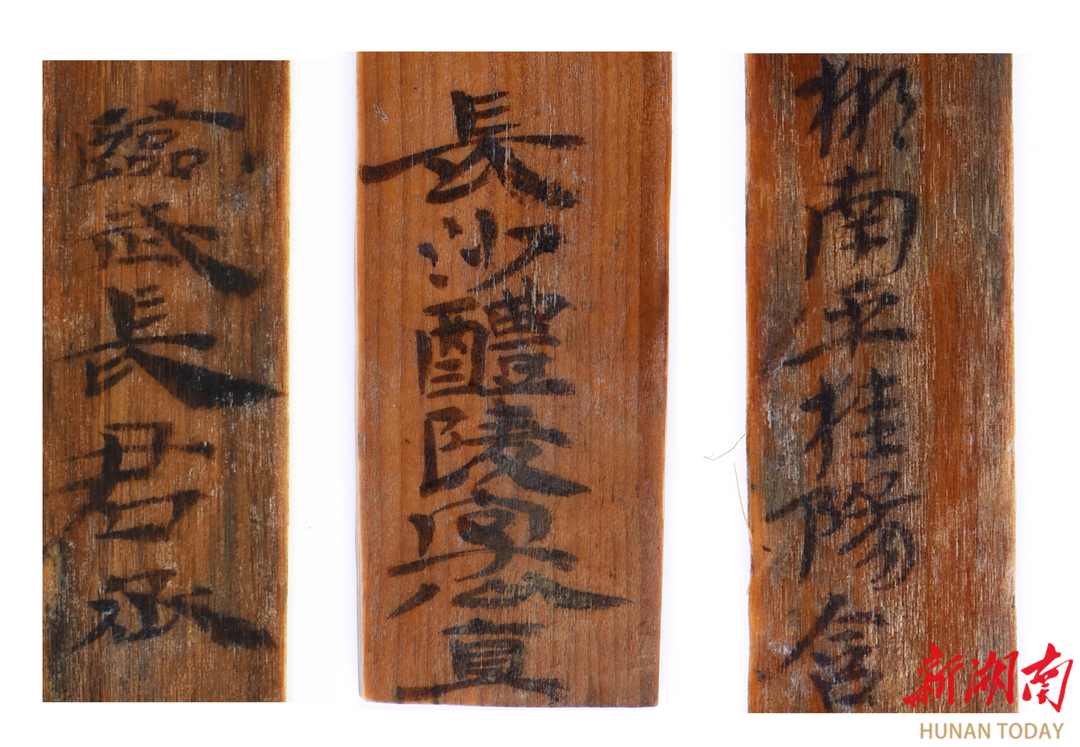 臨武長君丞
長沙醴陵直
郴南平桂陽含
新湖南
HUNAN TODAY